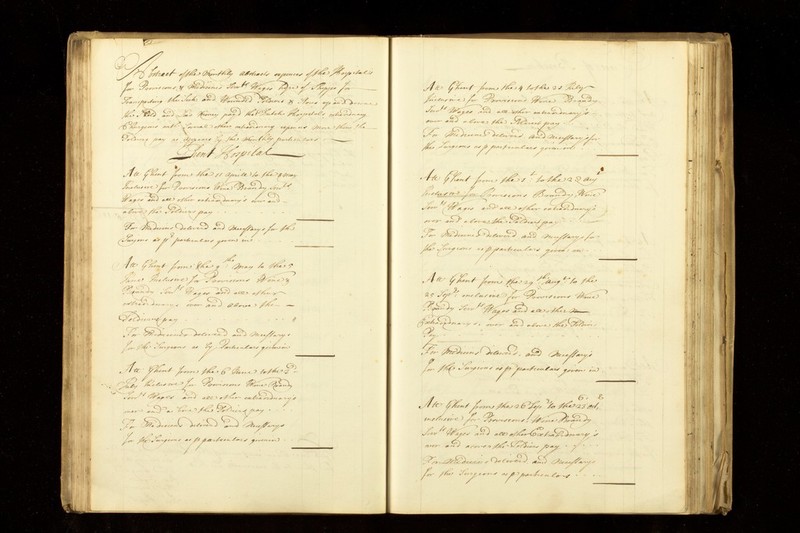 Abstract of the Monthly abstracts expences of the Hospitals
for Provisions & Medicines Serv.ts Wages hyre of for
Transporting the Sick and Wounded Soldiers &
and also money payd the Dutch Hospitals
& Surgeons with other expences more then the
Soldiers pay as appears by the Monthly particulars
Ghent Hospital
Att Ghent from the 11 Aprill to the 9 May
Inclusive for Provisions Wine Brandy Serv.ts
Wages and all other extraordinary's over and
above the Soldiers pay
For Medicines delivered and necessarys for the
Surgeons as p particulars given in
Att Ghent from the 9 th May to the
June Inclusive for Provisions Wine &
Brandy Serv.ts Wages and all other
extraordinarys over and above the
Soldiers pay
For Medicines delivered and necessarys
for the Surgeons as by Particulars given in
Att Ghent from the 6 June to the 2 d
July Inclusive for Provisions Wine Brandy
Serv.ts Wages and all other extraordinarys
over and above the Soldiers pay
For Medicines delivered and necessarys
for the Surgeons as p particulars given in
Att Ghent from the 4 to the 28 July
Inclusive for Provisions Wine Brandy
Serv.ts Wages and all other extraordinary's
over and above the Soldiers pay
For Medicines delivered and necessarys for
the Surgeons as p particulars given in
Att Ghent from the to the 28 Aug
Inclusive for Provisions Brandy Wine
Serv.ts Wages and all other extraordinary's
over and above the Soldiers pay
For Medicines delivered and necessarys for
the Surgeons as p particulars given in
Att Ghent from the 29 th Aug.st to the
25 Sep.r inclusive for Provisions Wine
Brandy Serv.ts Wages and all other
Extraordinary's over and above the Soldiers
Pay
For Medicines delivered and necessarys
for the Surgeons as p particulars given in
Att Ghent from the 26 Sep.r to the 23 Oct.
inclusive for Provisions Wine Brandy
Serv.ts Wages and all other Extraordinary's
over and above the Soldiers pay
For Medicines delivered and necessarys
for the Surgeons as p particulars